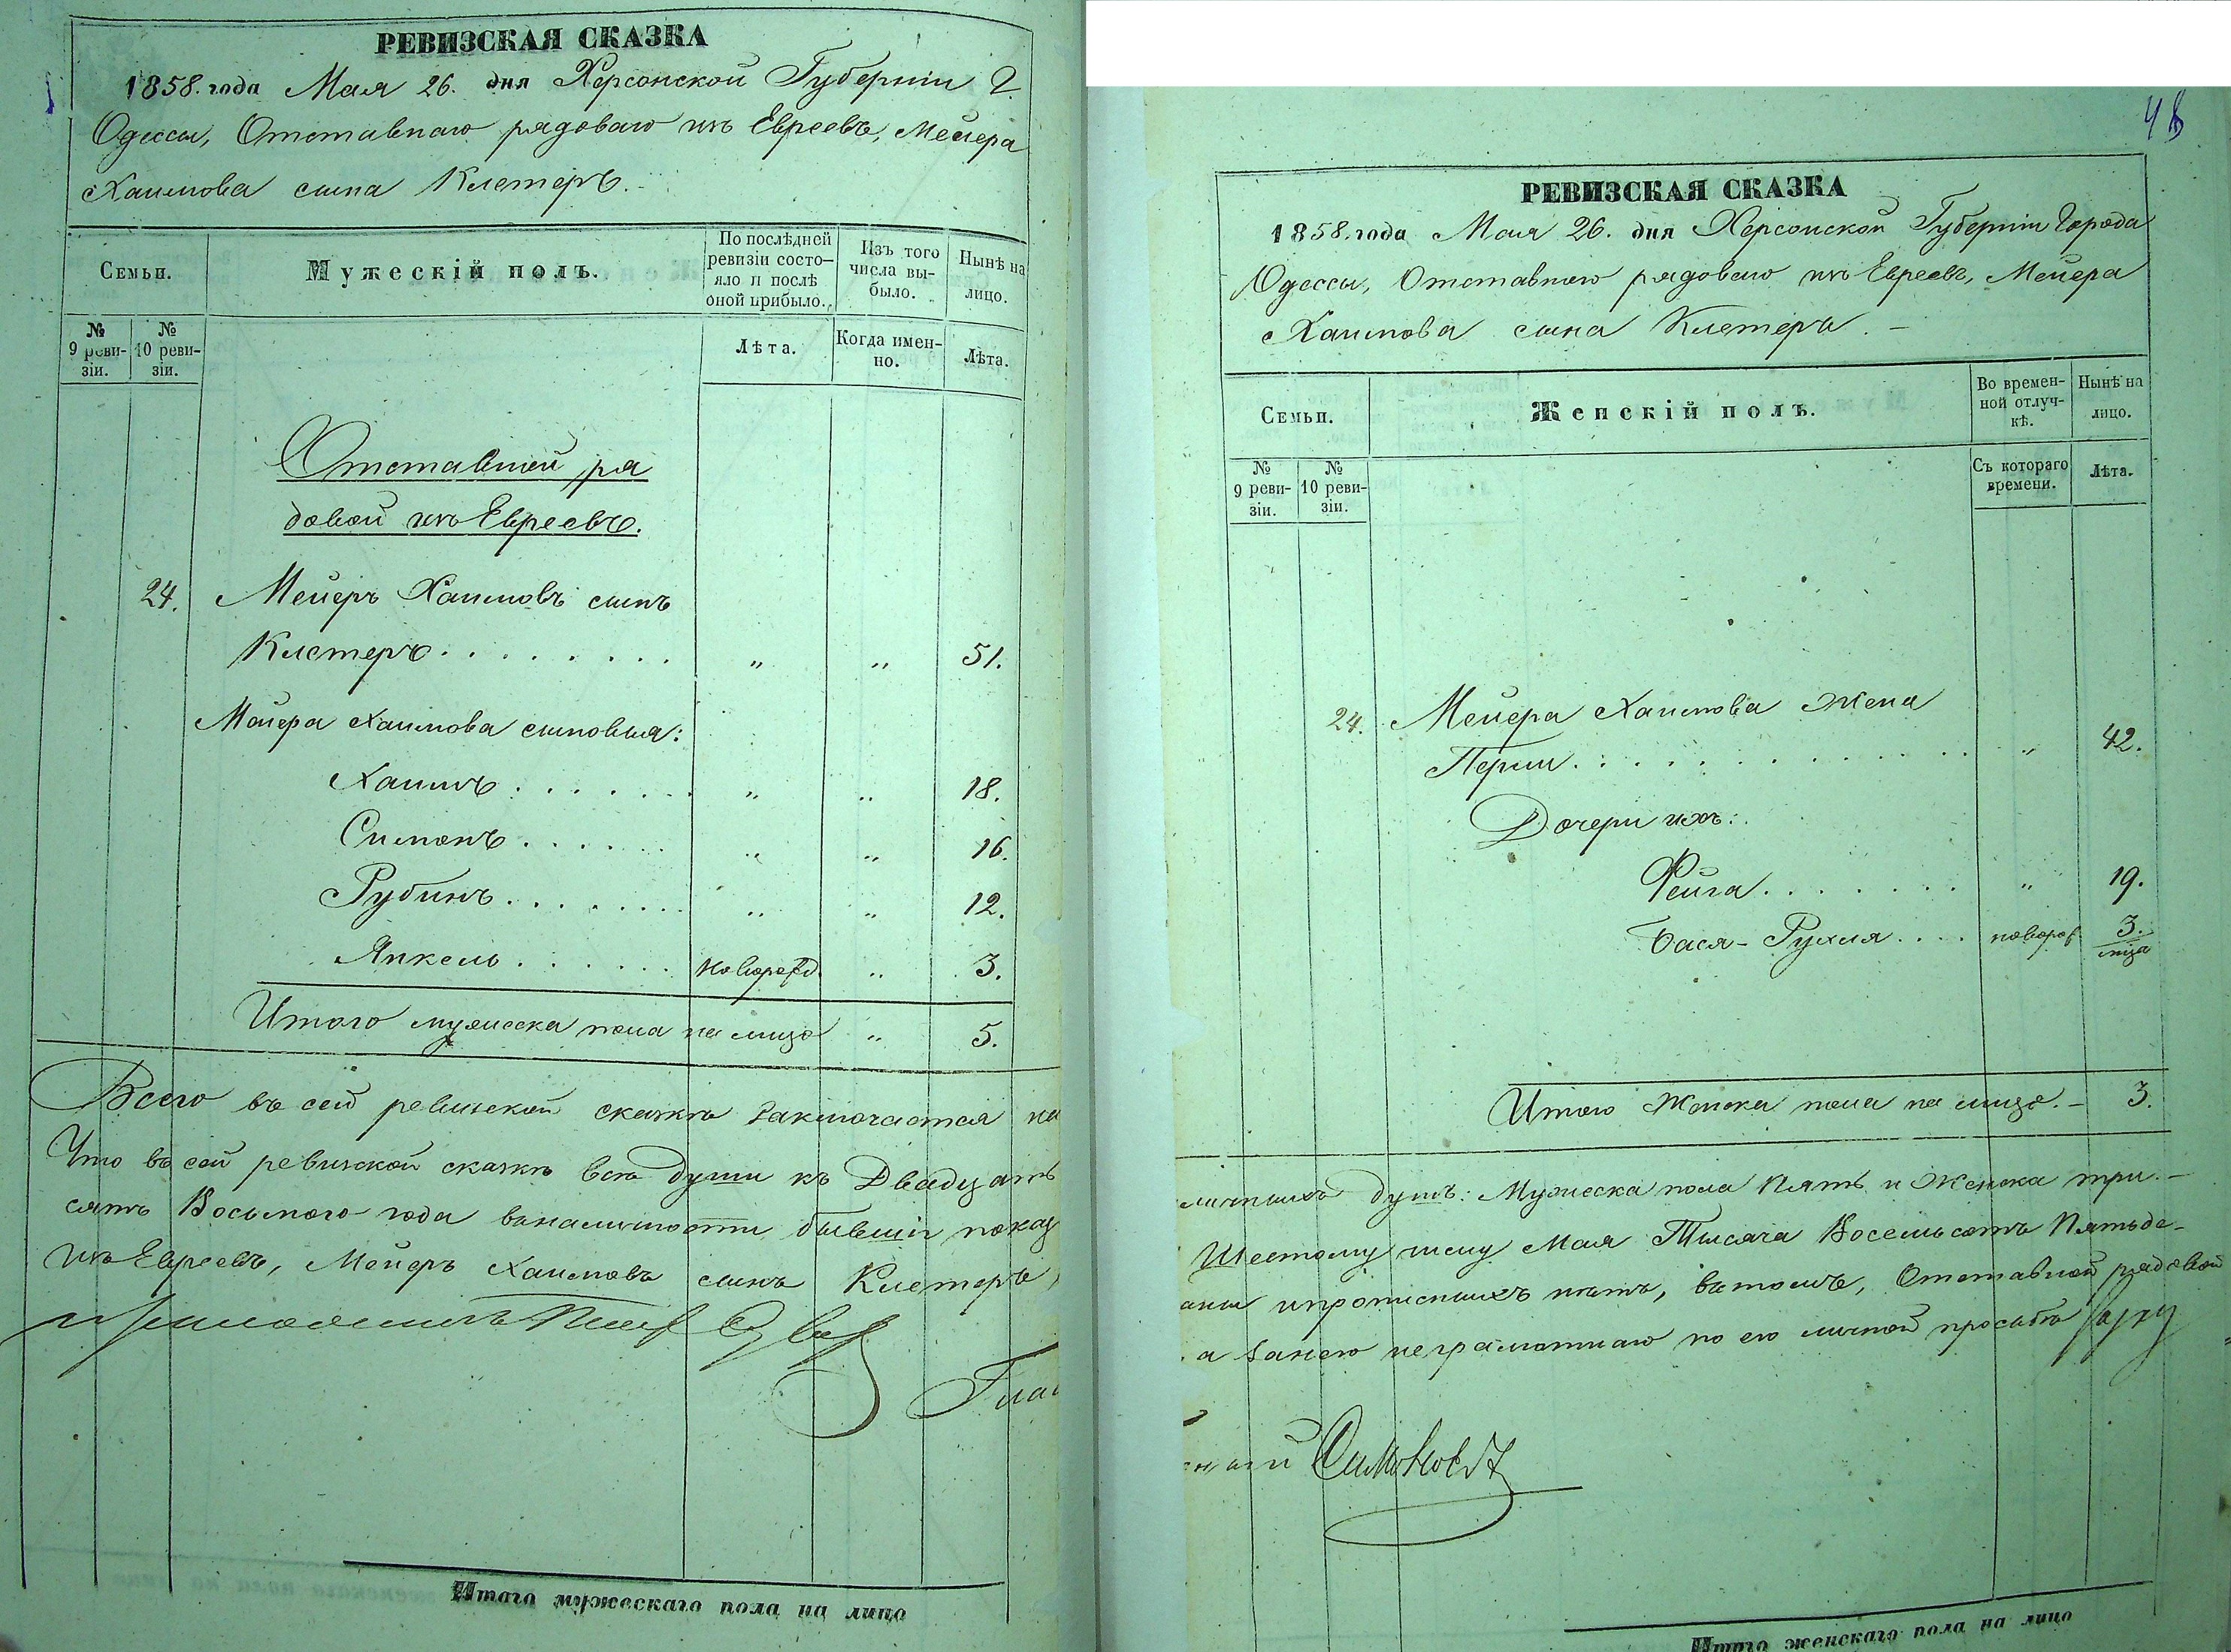 РЕВИЗСКАЯ СКАЗКА
1858. года Мая 26. дня Херсонской Губерніи Г.
Одессы, Отставнаго рядоваго изъ Евреевъ, Мейера
Хаимова сына Клетеръ.
Семьи.
Мужескій полъ.
По послѣдней ревизіи состо-
яло и послѣ
оной прибыло.
Изъ того
числа вы-
было.
Нынѣ на
лицо.
№
9 реви-
зіи.
№
10 реви-
зіи.
Лѣта.
Когда имен-
но.
Лѣта.
Отставной ря
довой изъ Евреевъ.
24. Мейеръ Хаимовъ сынъ
Клетеръ . . . . . . . . . „ „ 51.
Мейера Хаимова сыновья:
Хаимъ . . . . . . . „ „ 18.
Симонъ . . . . . . „ „ 16.
Рубинъ . . . . . . . . „ „ 12.
Янкель . . . . . . новорожд. „ 3.
Итого мужеска пола на лицо „ 5.
Всего въ сей ревизской сказкѣ заключается на
Что въ сей ревизской сказкѣ всѣ души къ Двадцать
сятъ Восьмого года въ наличности бывшія показ
изъ Евреевъ, Мейеръ Хаимовъ сынъ Клетеръ,
Глас
Итого мужескаго пола на лицо
РЕВИЗСКАЯ СКАЗКА
1858. года Мая 26. дня Херсонской Губерніи Города
Одессы, Отставнаго рядоваго изъ Евреевъ, Мейера
Хаимова сына Клетера. –
Семьи.
Женскій полъ.
Во времен-
ной отлуч-
кѣ.
Нынѣ на
лицо.
№
9 реви-
зіи.
№
10 реви-
зіи.
Съ котораго
времени.
Лѣта.
24. Мейера Хаимова жена
Перли . . . . . . . . . . . . . „ 42.
Дочери ихъ:
Фейга . . . . . . . „ 19.
Бася-Рухля . . . . новорож 3.
мца
Итого Женска пола на лицо. – 3.
личныхъ душъ: Мужеска пола Пять и Женска три. –
Шестому числу Мая Тысяча Восемьсотъ Пятьде-
аны и прописныхъ нѣтъ, въ томъ, Отставной рядовой
а за него неграмотнаго по его личной просьбѣ
сный Симоновъ
Итого женскаго пола на лицо